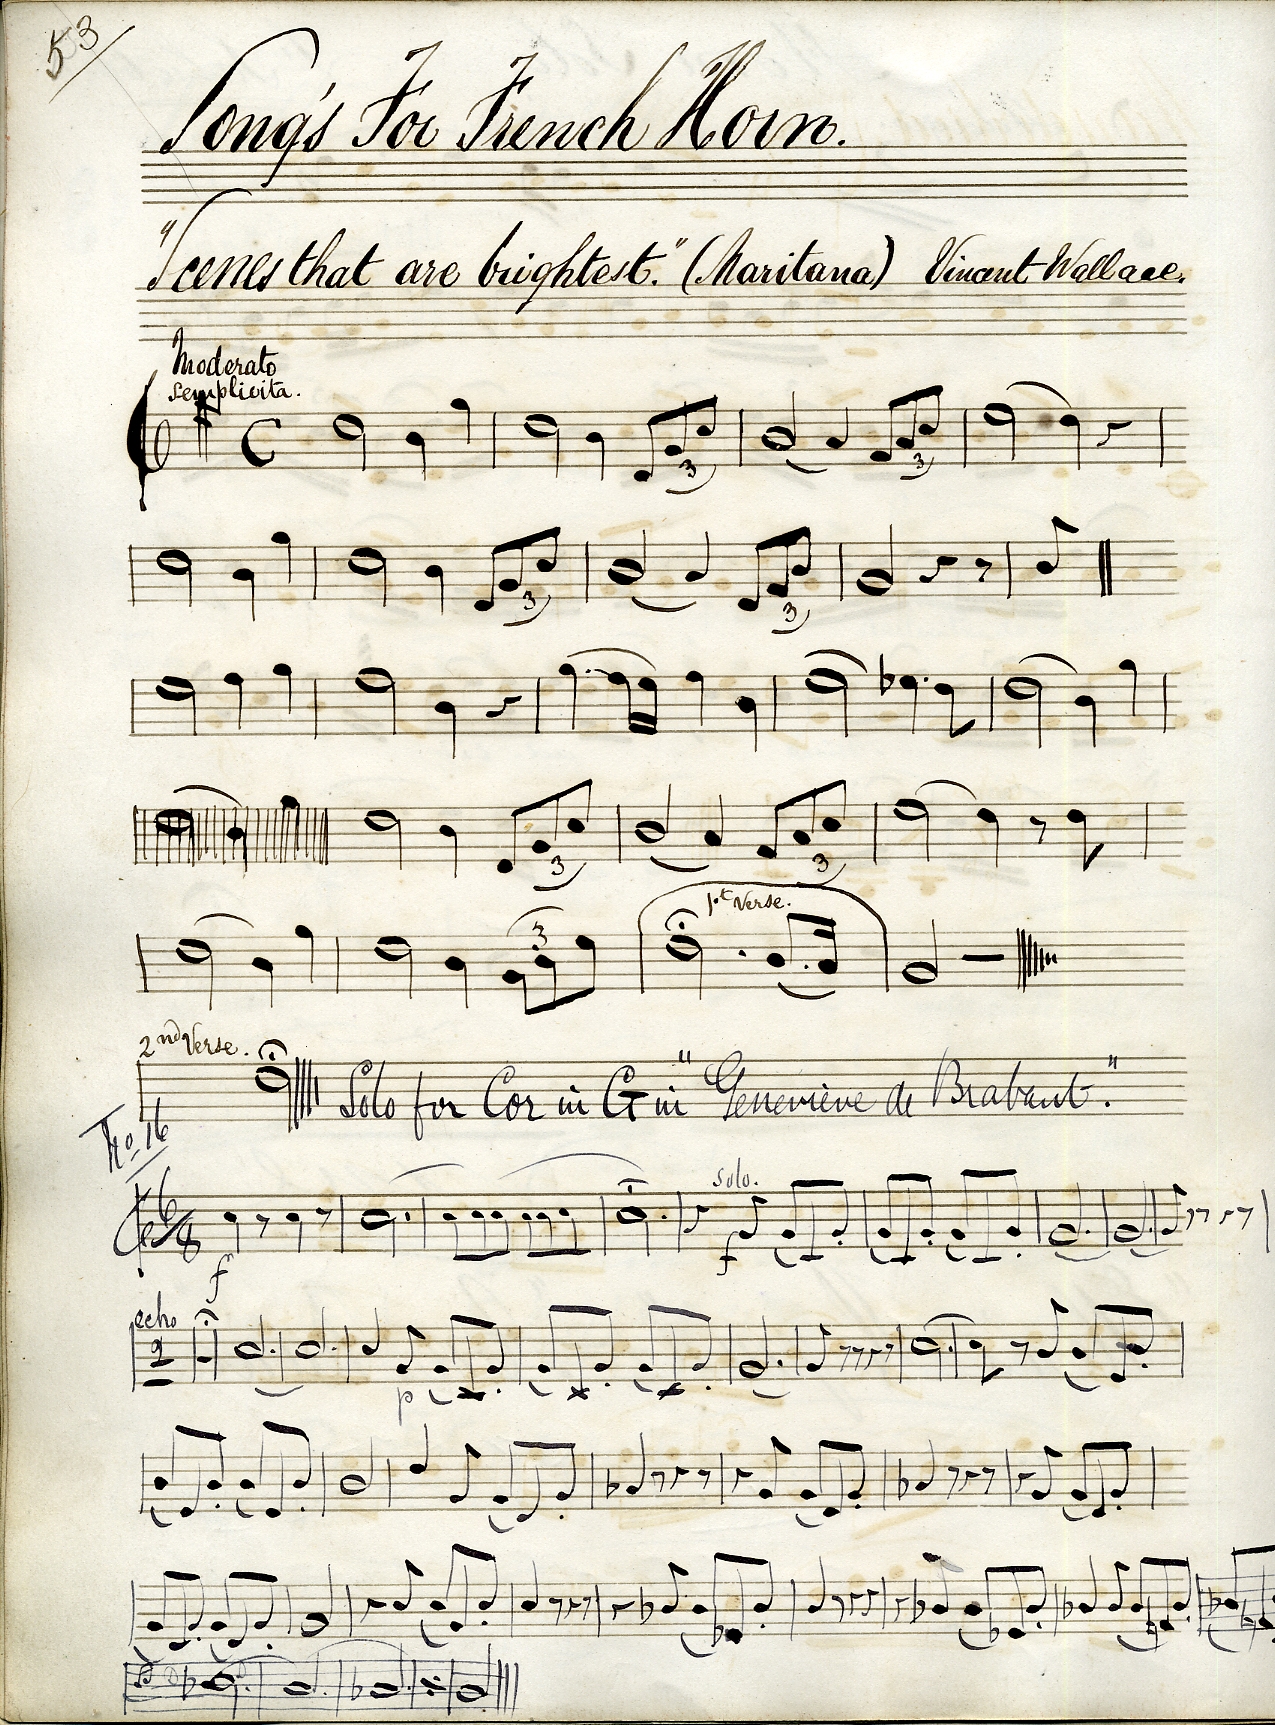 53
Song's For French Horn.
"Scenes that are brightest." (Maritana) Vincent Wallace.
Moderato
Semplicita.
C
3 3
3 3
3 3
1st Verse.
3
2nd Verse.
Solo for Cor in G in "Geneviève de Brabant."
No 16
6/8
solo.
f f
echo
2
p